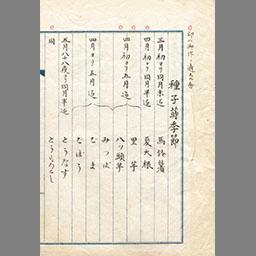 種子蒔季節
三月初ヨリ同月末迄 馬鈴薯
四月初ヨリ同月半迄 夏大根
四月初ヨリ五月迄 里芋
八ツ頭芋
四月ヨリ五月迄 みつば
ごま
ごぼう
五月八十八夜ヨリ同月半迄 とうなす
同